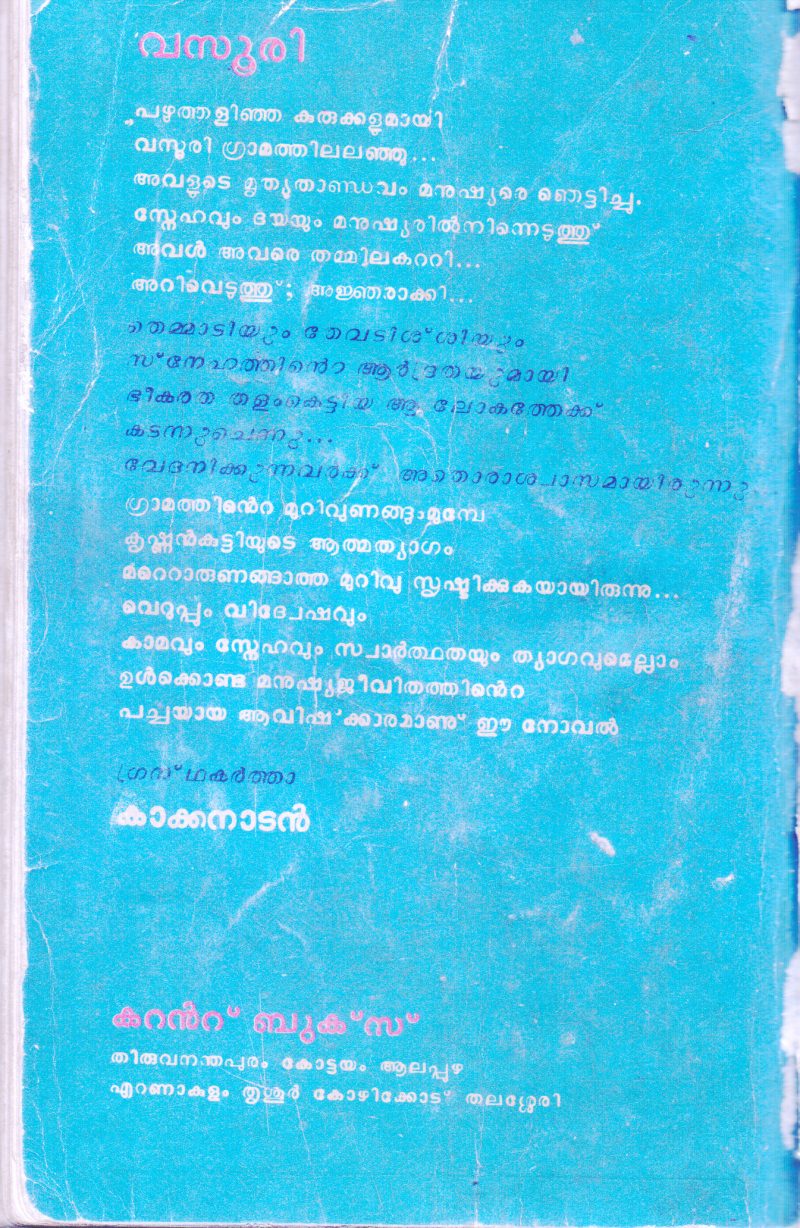 വസൂരി
പഴുത്തളിഞ്ഞ കുരുക്കളുമായി
വസൂരി ഗ്രാമത്തിലലഞ്ഞു...
അവളുടെ മൃത്യുതാണ്ഡവം മനുഷ്യരെ ഞെട്ടിച്ചു.
സ്നേഹവും ദയയും മനുഷ്യരിൽനിന്നെടുത്തു്
അവൾ അവരെ തമ്മിലകററി...
അറിവെടുത്തു്; അജ്ഞരാക്കി...
തെമ്മാടിയും തേവടിശ്ശിയും
സ്നേഹത്തിൻെറ ആർദ്രതയുമായി
ഭീകരത തളംകെട്ടിയ ആ ലോകത്തേക്ക്
കടന്നുചെന്നു...
വേദനിക്കുന്നവർക്ക് അതൊരാശ്വാസമായിരുന്നു.
ഗ്രാമത്തിൻെറ മുറിവുണങ്ങുംമുമ്പേ
കൃഷ്ണൻകുട്ടിയുടെ ആത്മത്യാഗം
മറെറാരുണങ്ങാത്ത മുറിവു സൃഷ്ടിക്കുകയായിരുന്നു...
വെറുപ്പും വിദ്വേഷവും
കാമവും സ്നേഹവും സ്വാർത്ഥതയും ത്യാഗവുമെല്ലാം
ഉൾക്കൊണ്ട മനുഷ്യജീവിതത്തിൻെറ
പച്ചയായ ആവിഷ്ക്കാരമാണു് ഈ നോവൽ
ഗ്രന്ഥകർത്താ
കാക്കനാടൻ
കറൻറ് ബുക്സ്
തിരുവനന്തപുരം കോട്ടയം ആലപ്പുഴ
എറണാകുളം തൃശൂർ കോഴിക്കോട് തലശ്ശേരി